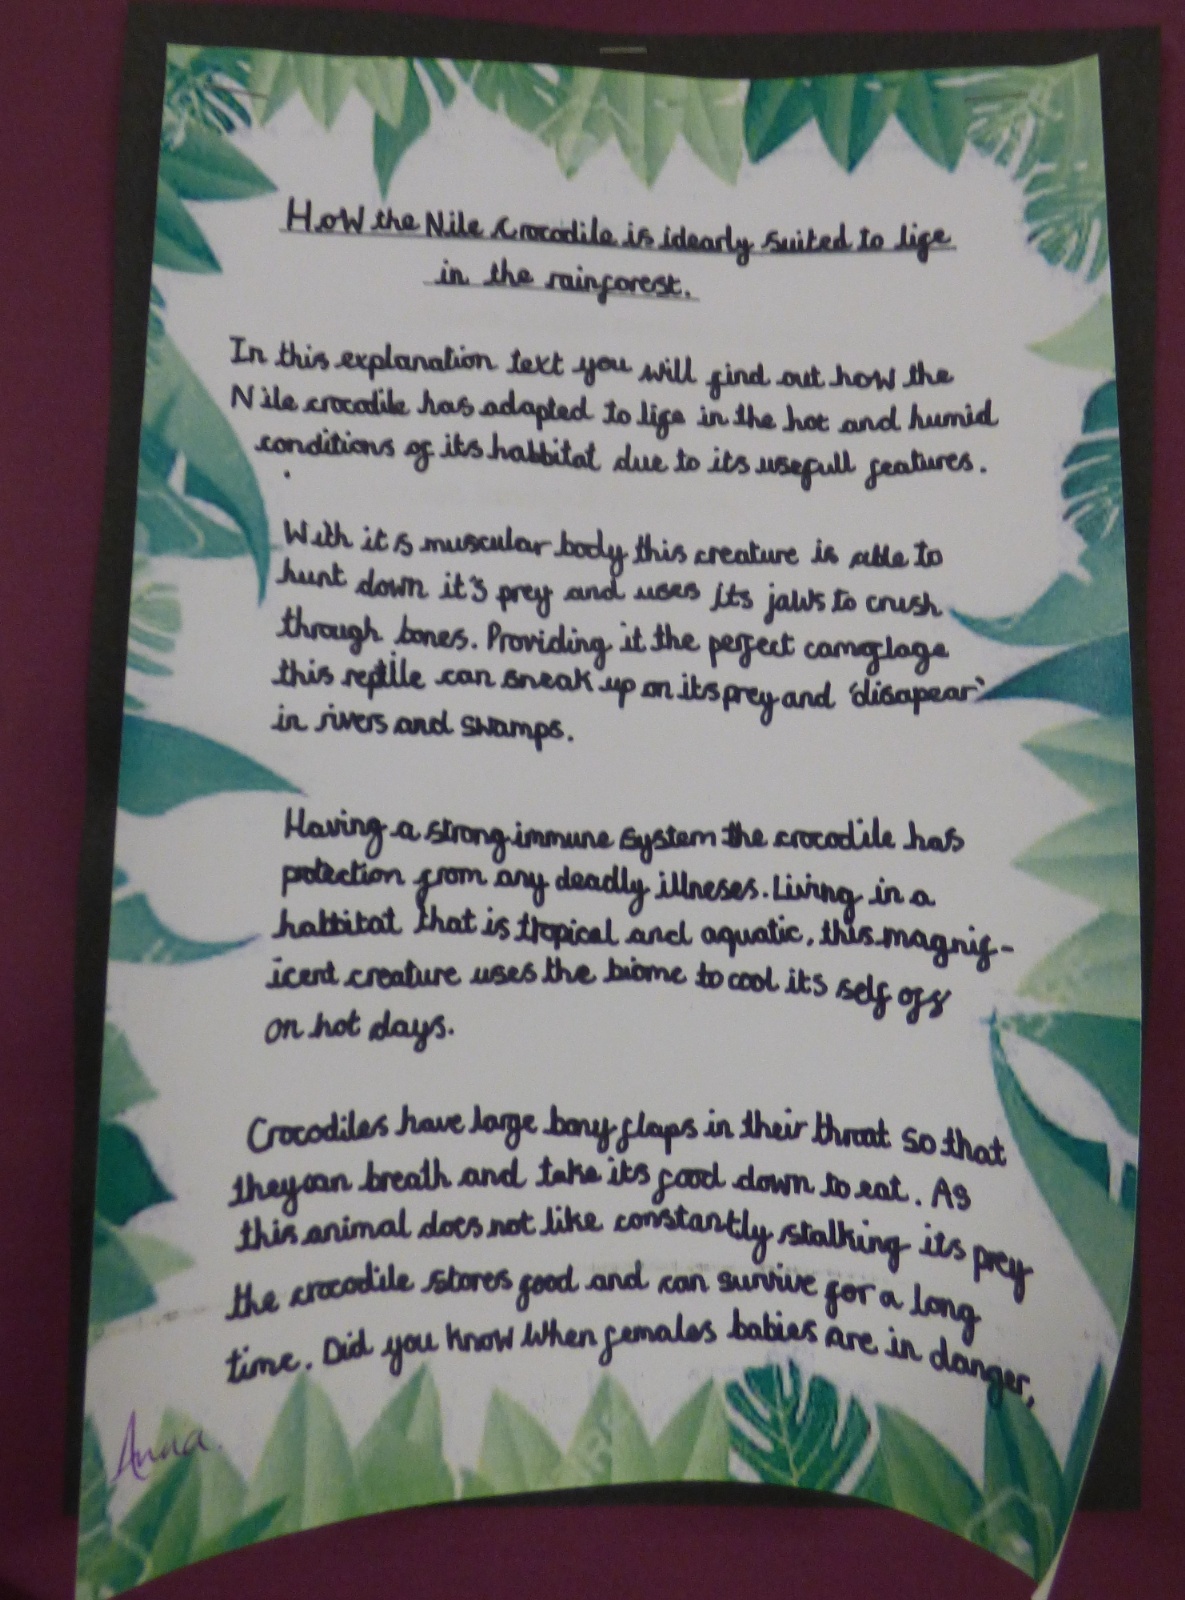 How the Nile Crocodile is idearly suited to life
in the rainforest.
In this explanation text you will find out how the
Nile crocodile has adapted to life in the hot and humid
conditions of its habbitat due to its usefull features.
With it's muscular body this creature is able to
hunt down it's prey and uses its jaws to crush
through bones. Providing it the perfect camoflage
this reptile can sneak up on its prey and 'disapear'
in rivers and swamps.
Having a strong immune system the crocodile has
protection from any deadly illneses. Living in a
habbitat that is tropical and aquatic, this magnif-
icent creature uses the biome to cool its self off
on hot days.
Crocodiles have large bony flaps in their throat so that
they can breath and take its food down to eat. As
this animal does not like constantly stalking its prey
the crocodile stores food and can survive for a long
time. Did you know when females babies are in danger,
Anna.